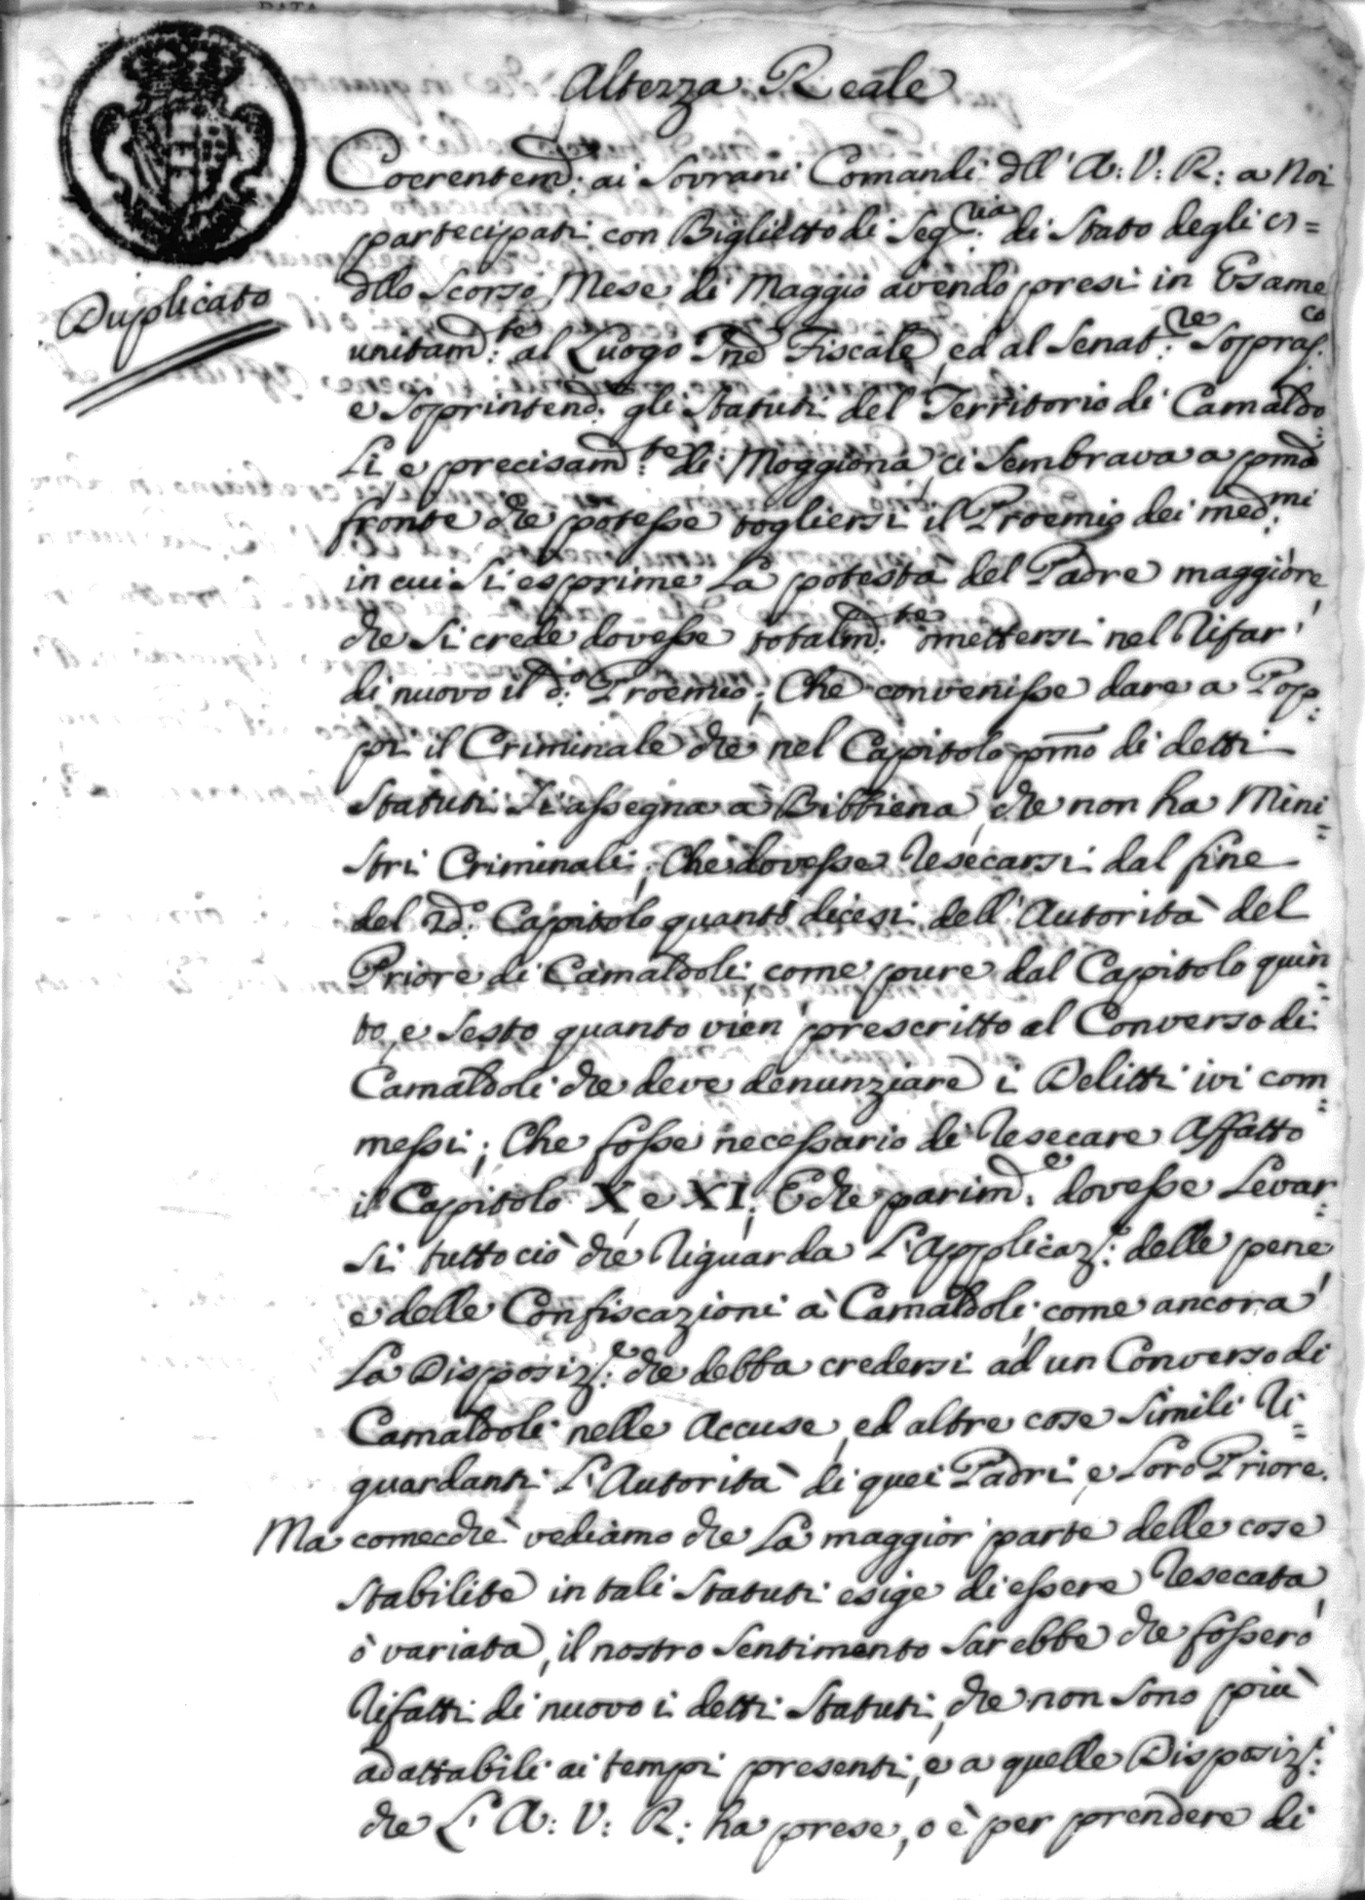 Altezza Reale
Duplicato
Coerentem: ai Sovrani Comandi dell' A: V: R: a Noi
partecipati con Biglietto di Seg:ria di Stato degli
dello scorso Mese di Maggio avendo presi in Esame
unitam:te al Luogo Tne Fiscale, ed al Senat:re Sopras:co
e Soprintend: gli Statuti del Territorio di Camaldo=
li, e precisam:te di Moggiona, ci sembrava a pma
fronte che potesse togliersi il Proemio dei med:mi
in cui si esprime la potestà del Padre maggiore,
che si crede dovesse totalm:te omettersi nel rifar'
di nuovo il d:o Proemio; Che convenisse dare a Pop=
pi il Criminale che nel Capitolo pmo di detti
Statuti si assegna à Bibbiena, che non ha Mini=
stri Criminali; Che dovesse resecarsi dal fine
del 2d:o Capitolo quanto dicesi dell' Autorità del
Priore di Camaldoli come pure dal Capitolo quin=
to, e sesto quanto vien prescritto al Converso di
Camaldoli che deve denunziare i Delitti ivi com=
messi; Che fosse necessario di resecare affatto
il Capitolo X, e XI; E che parim:e dovesse levar=
si tutto ciò che riguarda l'Applicaz: delle pene,
e delle Confiscazioni à Camaldoli, come ancora
la Disposiz:e che debba credersi ad un Converso di
Camaldoli nelle Accuse, ed altre cose simili ri=
guardanti l'Autorità di quei Padri, e loro Priore.
Ma comecchè vediamo che la maggior parte delle cose
stabilite in tali Statuti esige di essere resecata,
ò variata, il nostro sentimento sarebbe che fossero
rifatti di nuovo i detti Statuti, che non sono più
adattabili ai tempi presenti, e a quelle Disposiz:i
che L' A: V: R: ha prese, o è per prendere di